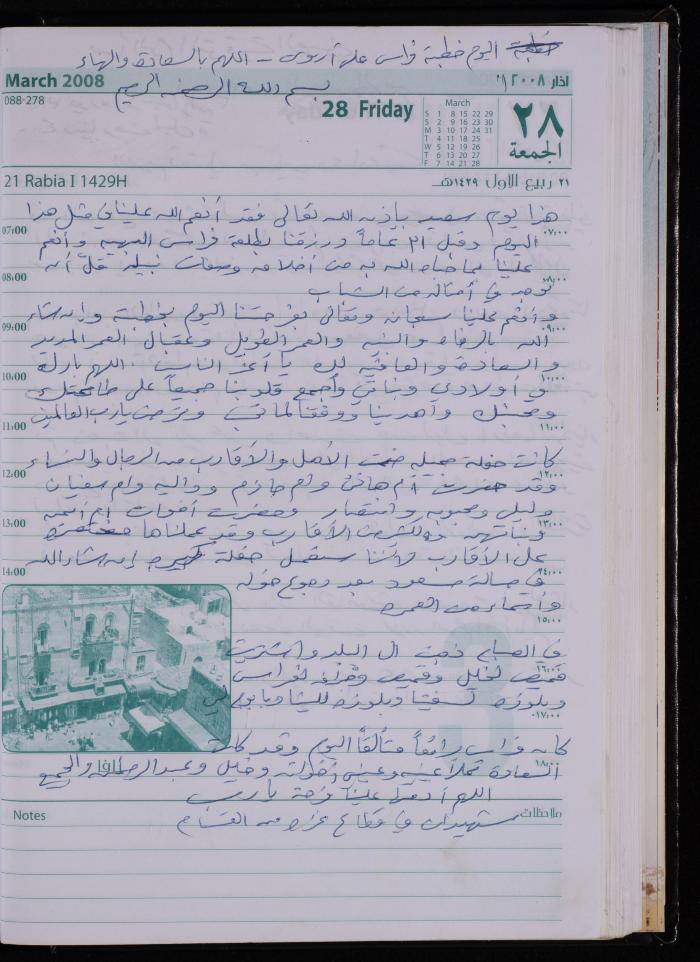 اليوم خطبة فراس على أروى - اللهم بالسعادة والهناء
March 2008
آذار ٢٠٠٨
بسم الله الرحمن الرحيم
088-278
28 Friday
٢٨
الجمعة
March
S 1 8 15 22 29
S 2 9 16 23 30
M 3 10 17 24 31
T 4 11 18 25
W 5 12 19 26
T 6 13 20 27
F 7 14 21 28
21 Rabia I 1429H
٢١ ربيع الاول ١٤٢٩هـ
هذا يوم سعيد بإذن الله تعالى فقد أنعم الله علينا في مثل هذا
07:00
٠٧:٠٠
اليوم وقبل عاماً ورزقنا بطلعة فراس البهية وأنعم
علينا بما حباه الله به من أخلاق وصفات نبيلة قل أن
08:00
٠٨:٠٠
توجد في أمثاله من الشباب
وأنعم علينا سبحانه وتعالى بفرحتنا اليوم بخطبته وإن شاء
09:00
٠٩:٠٠
الله بالرفاه والبنين والعمر الطويل وعقبال العمر المديد
والسعادة والعافية لك يا أعز الناس. اللهم بارك
10:00
١٠:٠٠
في أولادي وبناتي وأجمع قلوبنا جميعاً على طاعتك
ومحبتك وأهدينا ووفقنا لما تحب وترضى يا رب العالمين
11:00
١١:٠٠
كانت حفلة جميلة ضمت الأهل والأقارب من الرجال والنساء
12:00
١٢:٠٠
وقد حضرت أم هاني وأم حازم وداليه وام سفيان
وليلى وانتصار وحضرت أخوات ام
13:00
١٣:٠٠
وبناتهن من الأقارب وقد عملناها مختصرة
على الأقارب لأننا سنعمل حفلة كبيرة إن شاء الله
14:00
١٤:٠٠
في صالة مسعود بعد رجوع خوله
وأسماء من العمرة
١٥:٠٠
في الصباح ذهبت الى البلد واشتريت
١٦:٠٠
قميص لخليل وقميص لفراس
وبلوزه وبلوزه
١٧:٠٠
كان فراس رائعاً متألقاً اليوم وقد كانت
١٨:٠٠
السعادة تملأ عينيه وعيني خوله وخليل وعبد الرحمن والجميع
اللهم أدمها علينا فرحة يا رب
Notes
ملاحظات
شهيدان في قطاع غزة من القسام